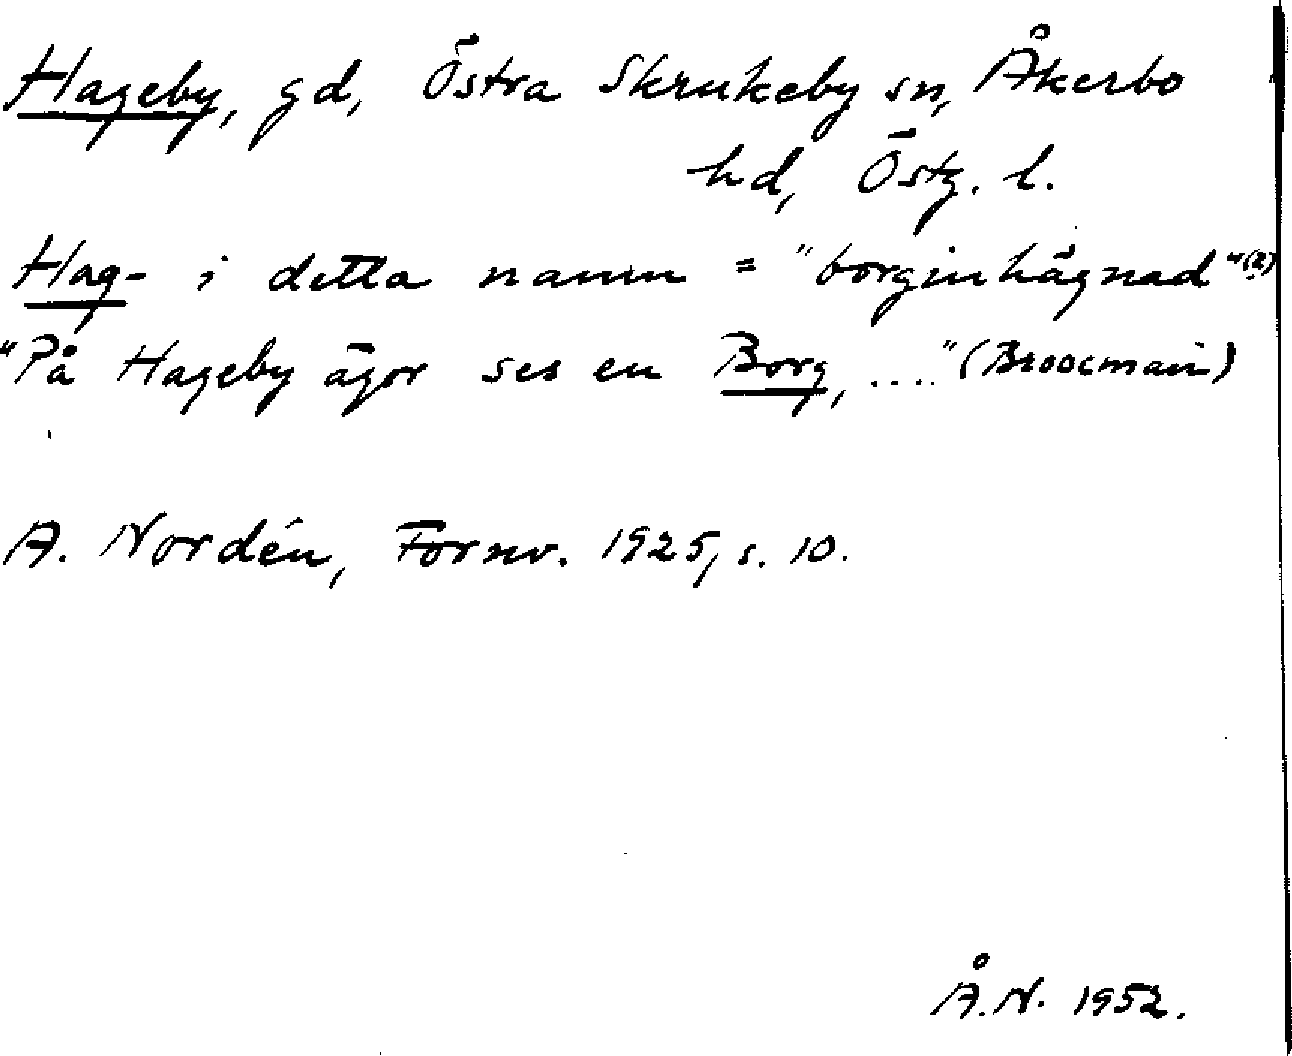 Hageby, gd, Östra Skrukeby sn, Åkerbo
hd, Östg. l.
Hag- i detta namn = "borginhägnad"(?)
"På Hageby ägor ses en Borg, ...." (Broocman)
A. Nordén, Fornv. 1925, s. 10.
Å.N. 1952.